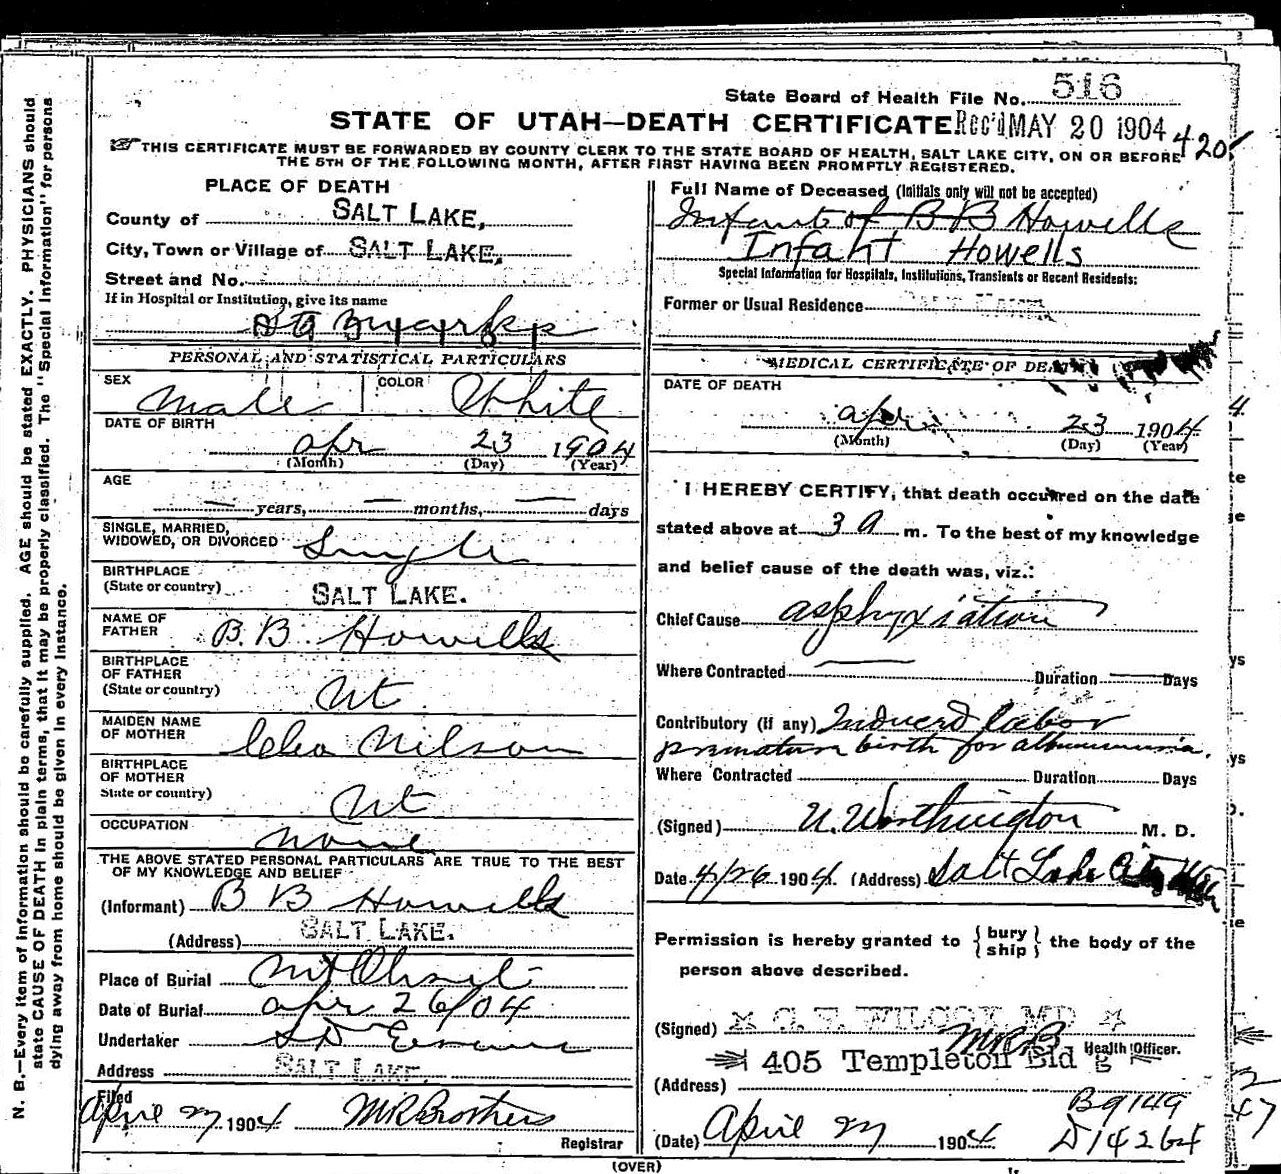 N. B.—Every item of information should be carefully supplied. AGE should be stated EXACTLY. PHYSICIANS should
state CAUSE OF DEATH in plain terms, that it may be properly classified. The "Special Information" for persons
dying away from home should be given in every instance.
State Board of Health File No. 516
STATE OF UTAH—DEATH CERTIFICATE Rec'd MAY 20 1904 420
THIS CERTIFICATE MUST BE FORWARDED BY COUNTY CLERK TO THE STATE BOARD OF HEALTH, SALT LAKE CITY, ON OR BEFORE
THE 5TH OF THE FOLLOWING MONTH, AFTER FIRST HAVING BEEN PROMPTLY REGISTERED.
PLACE OF DEATH
County of SALT LAKE,
City, Town or Village of SALT LAKE,
Street and No.
If in Hospital or Institution, give its name
PERSONAL AND STATISTICAL PARTICULARS
SEX Male COLOR White
DATE OF BIRTH
Apr 23 1904
(Month) (Day) (Year)
AGE
— years, — months, — days
SINGLE, MARRIED,
WIDOWED, OR DIVORCED Single
BIRTHPLACE
(State or country) SALT LAKE.
NAME OF
FATHER B. B. Howells
BIRTHPLACE
OF FATHER
(State or country) Ut
MAIDEN NAME
OF MOTHER Cleo Nilson
BIRTHPLACE
OF MOTHER
State or country) Ut
OCCUPATION None
THE ABOVE STATED PERSONAL PARTICULARS ARE TRUE TO THE BEST
OF MY KNOWLEDGE AND BELIEF
(Informant) B B Howells
(Address) SALT LAKE.
Place of Burial Mt Olivet
Date of Burial Apr 26/04
Undertaker S D Evans
Address SALT LAKE.
Filed
April 27 1904 M R Brothers
Registrar
Full Name of Deceased (Initials only will not be accepted)
Infant of B B Howells
Infant Howells
Special Information for Hospitals, Institutions, Transients or Recent Residents:
Former or Usual Residence SALT LAKE
MEDICAL CERTIFICATE OF DEATH
DATE OF DEATH
Apr 23 1904
(Month) (Day) (Year)
I HEREBY CERTIFY, that death occurred on the date
stated above at 3 a m. To the best of my knowledge
and belief cause of the death was, viz.:
Chief Cause asphyxiation
Where Contracted — Duration — Days
Contributory (if any) Induced labor
premature birth for albuminuria.
Where Contracted Duration Days
(Signed) U. Worthington M. D.
Date 4/26 1904. (Address) Salt Lake City
Permission is hereby granted to { bury
ship } the body of the
person above described.
(Signed) C. F. WILCOX, MD
MRB Health Officer.
405 Templeton Bld g
(Address)
B9149
(Date) April 27 1904 D14264
(OVER)